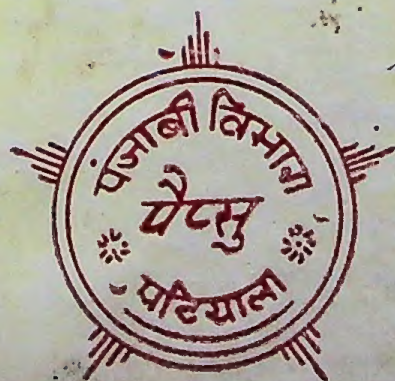 पंजाबी विभाग
पैप्सु
पटियाला